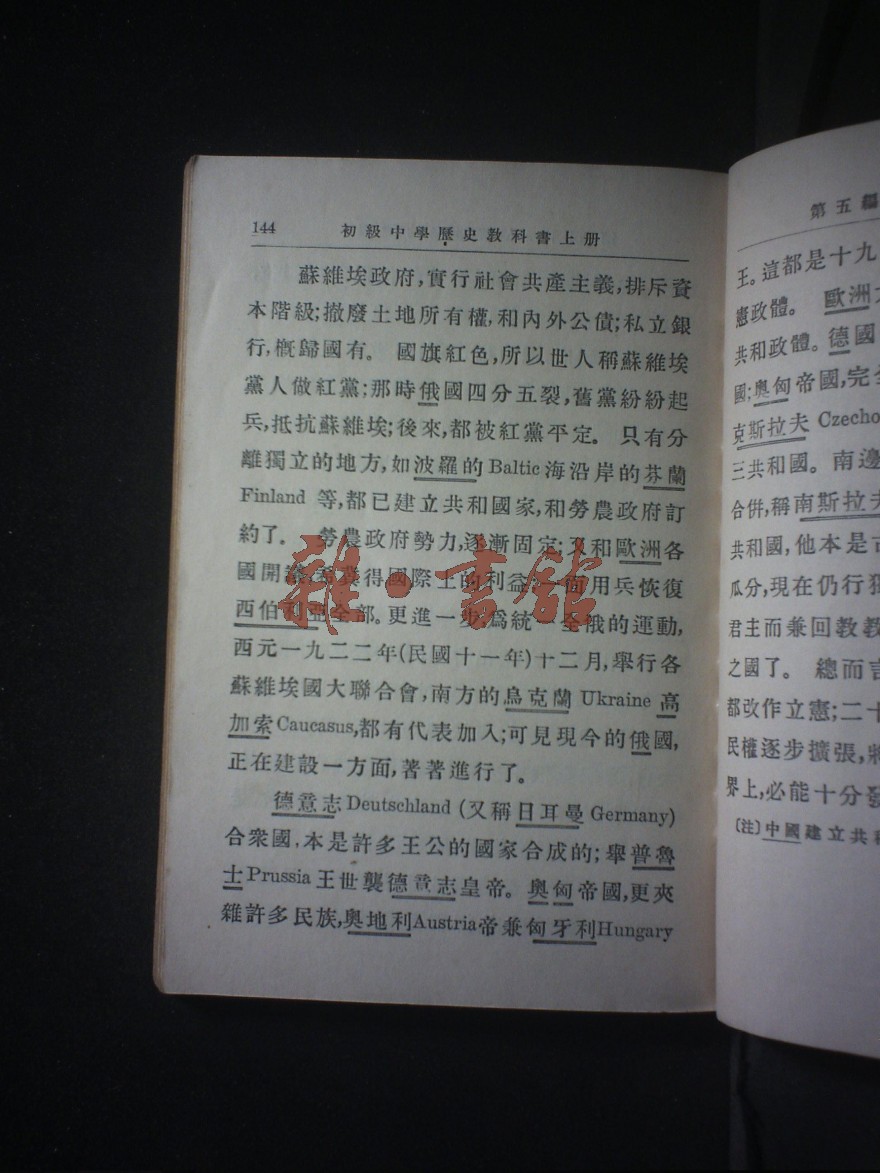 144 初級中學歷史教科書上册
蘇維埃政府,實行社會共產主義,排斥資
本階級;撤廢土地所有權,和內外公債;私立銀
行,概歸國有。 國旗紅色,所以世人稱蘇維埃
黨人做紅黨;那時俄國四分五裂,舊黨紛紛起
兵,抵抗蘇維埃;後來,都被紅黨平定。 只有分
離獨立的地方,如波羅的Baltic海沿岸的芬蘭
Finland 等,都已建立共和國家,和勞農政府訂
約了。 勞農政府勢力,逐漸固定;又和歐洲各
國開 得國際上的利益;一面用兵恢復
西伯利亞全部。更進一步,爲統一全俄的運動,
西元一九二二年(民國十一年)十二月,舉行各
蘇維埃國大聯合會,南方的烏克蘭 Ukraine 高
加索Caucasus,都有代表加入;可見現今的俄國,
正在建設一方面,著著進行了。
德意志Deutschland (又稱日耳曼Germany)
合衆國,本是許多王公的國家合成的;舉普魯
士Prussia王世襲德意志皇帝。 奧匈帝國,更夾
雜許多民族,奧地利Austria帝兼匈牙利Hungary
雜·書館
第五編
王。這都是十九
憲政體。 歐洲
共和政體。德國
國;奧匈帝國,完全
克斯拉夫 Czecho
三共和國。 南邊
合併,稱南斯拉夫
共和國,他本是古
瓜分,現在仍行獨
君主而兼回教教
之國了。 總而言
都改作立憲;二十
民權逐步擴張,將
界上,必能十分發
〔注〕中國建立共和